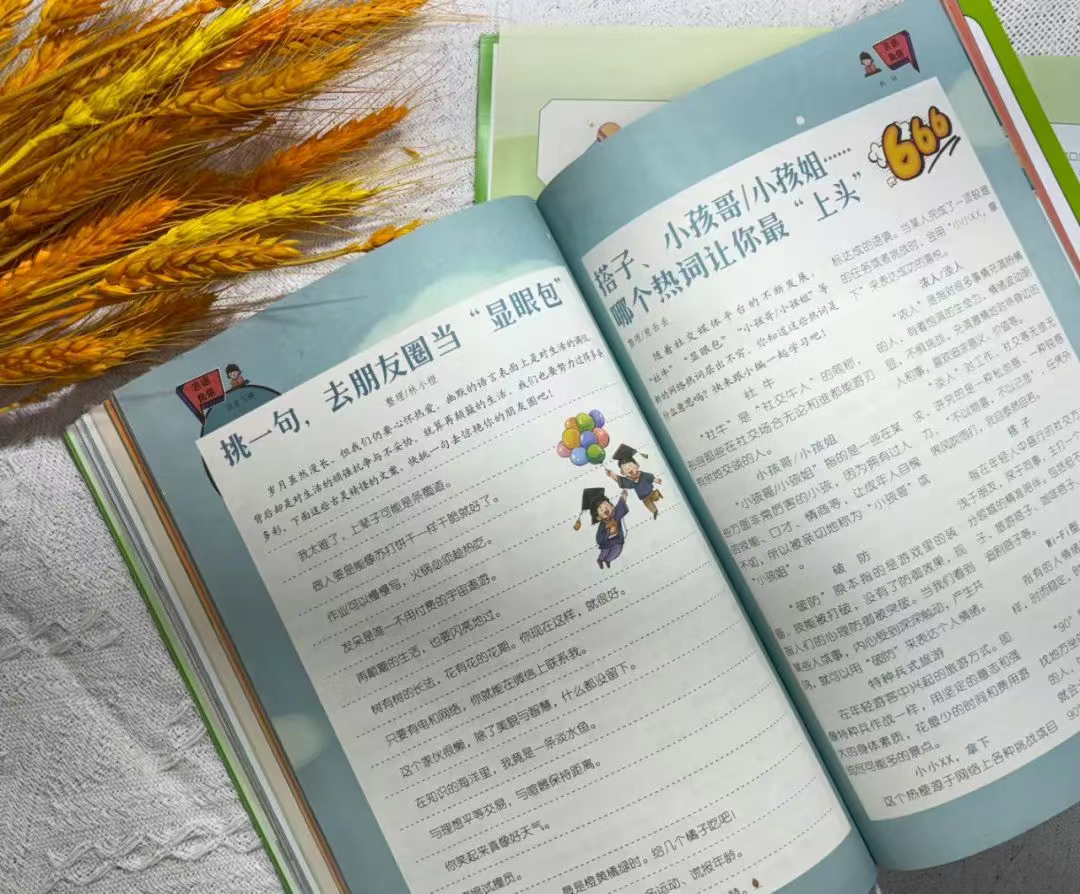 挑一句，去朋友圈当“显眼包”
整理/林小橙
岁月虽然漫长，但我们仍要心怀热爱。幽默的语言表面上是对生活的调侃，
背后却是对生活的顽强抗争与不妥协。就算再颠簸的生活，我们也要努力过得多姿
多彩。下面这些古灵精怪的文案，快挑一句去惊艳你的朋友圈吧！
我太难了，上辈子可能是条蜀道。
做人要是能像苏打饼干一样干脆就好了。
作业可以慢慢写，火锅必须趁热吃。
发呆是唯一不用付费的宇宙遨游。
再颠簸的生活，也要闪亮地过。
树有树的长法，花有花的花期。你现在这样，就很好。
只要有电和网络，你就能在微信上联系我。
这个家伙很懒，除了美貌与智慧，什么都没留下。
在知识的海洋里，我竟是一条淡水鱼。
与理想平等交易，与喧嚣保持距离。
你笑起来真像好天气。
最是橙黄橘绿时。给几个橘子吃吧！
运动、谎报年龄。
热词
666
搭子、小孩哥/小孩姐……
哪个热词让你最“上头”
随着社交媒体平台的不断发展，
“社牛”“显眼包”“小孩哥/小孩姐”等
新的网络热词层出不穷，你知道这些热词是
什么意思吗？快来跟小编一起学习吧！
社牛
“社牛”是“社交牛人”的简称，
形容那些在社交场合无论和谁都能游刃
有余地交谈的人。
小孩哥/小孩姐
“小孩哥/小孩姐”指的是一些在某
些方面非常厉害的小孩，因为拥有过人
的技能、口才、情商等，让成年人自愧
不如，所以被亲切地称为“小孩哥”或
“小孩姐”。
破防
“破防”原本指的是游戏里的装
备、技能被打破，没有了防御效果，现
指人们的心理防御被突破。当我们看到
某些人或事，内心受到深深触动，产生共
鸣，就可以用“破防”来表达个人情绪。
特种兵式旅游
在年轻游客中兴起的旅游方式。即
像特种兵作战一样，用坚定的意志和强
大的身体素质，花最少的时间和费用游
览尽可能多的景点。
小小XX，拿下
这个热梗源于网络上各种挑战项目
标达成的语录。当某人完成了一项较难
的任务或者挑战时，会用“小小XX，拿
下”来表达成功的喜悦。
浓人/淡人
“浓人”是指对很多事情充满热情
的人，有着饱满的生命力，情绪波动明
人和事，喜欢追求意义、价值等。
“淡人”对工作、社交等无欲无
求，讲究的是一种松弛感，一种随意
力，“不以物喜，不以己悲”，任凭外
界风吹雨打，我自岿然自若。
搭子
指在年轻人中盛行的社交方
浅于朋友，深于同事，主打一个
分领域的精准陪伴。
子、旅游搭子、咖啡搭子、
细则搭子等。
Wi-Fi型
指有的人情绪
样，时而稳定，
“90°
找地方坐
的人
就会
90